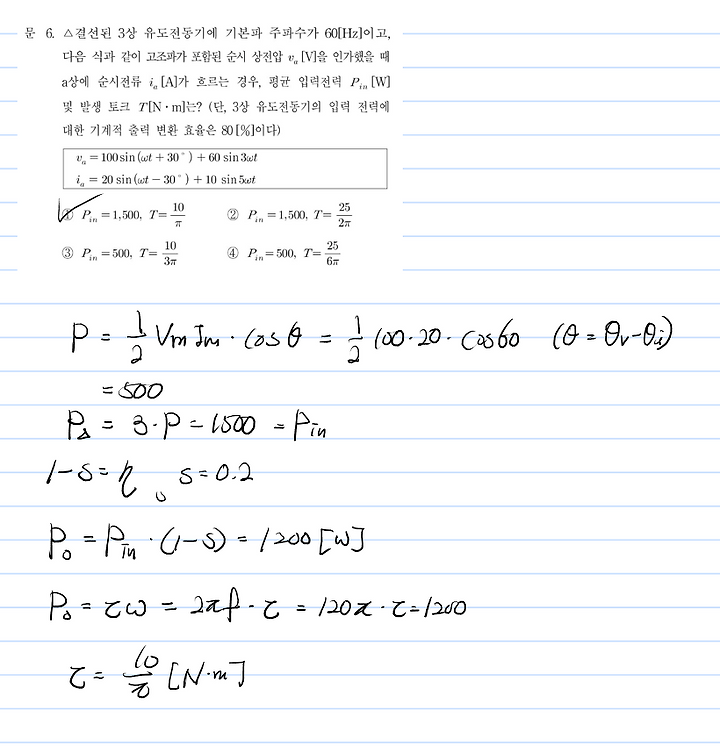 문 6. △결선된 3상 유도전동기에 기본파 주파수가 60[Hz]이고,
다음 식과 같이 고조파가 포함된 순시 상전압 vₐ[V]을 인가했을 때
a상에 순시전류 iₐ[A]가 흐르는 경우, 평균 입력전력 Pᵢₙ[W]
및 발생 토크 T[N·m]는? (단, 3상 유도전동기의 입력 전력에
대한 기계적 출력 변환 효율은 80[%]이다)
vₐ = 100 sin(ωt + 30°) + 60 sin 3ωt
iₐ = 20 sin(ωt − 30°) + 10 sin 5ωt
① Pᵢₙ = 1,500, T = 10/π ② Pᵢₙ = 1,500, T = 25/2π
③ Pᵢₙ = 500, T = 10/3π ④ Pᵢₙ = 500, T = 25/6π
P = 1/2 Vm Im · cos θ = 1/2 100·20· cos60 (θ = θv - θi)
= 500
P△ = 3·P = 1500 = Pin
1-s = η, s = 0.2
Po = Pin · (1-s) = 1200 [W]
Po = τω = 2πf · τ = 120π · τ = 1200
τ = 10/π [N·m]